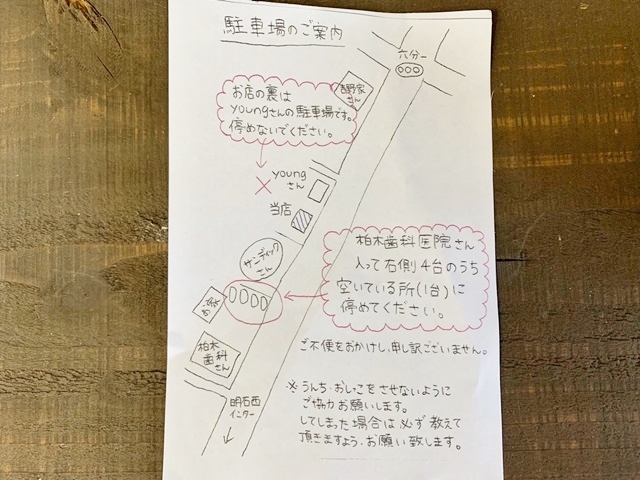 駐車場のご案内
六分一
吉野家
さん
お店の裏は
youngさんの駐車場です。
停めないでください。
young
さん
当店
サンディック
さん
柏木歯科医院さん
入って右側4台のうち
空いている所(1台)に
停めてください。
お家
柏木
歯科
さん
ご不便をおかけし、申し訳ございません。
明石西
インター
※うんち・おしっこをさせないように
ご協力お願いします。
してしまった場合は必ず教えて
頂きますよう、お願い致します。